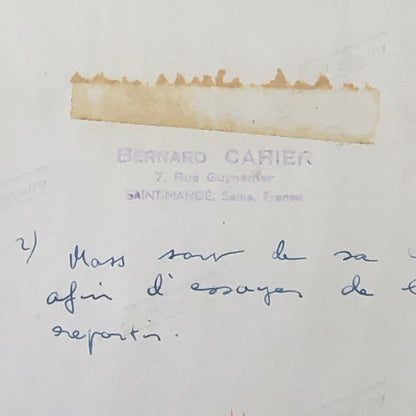 BERNARD CAHIER
7, Rue Guynemer
SAINT-MANDÉ, Seine, France
2) Moss sort de sa
afin d'essayer de
repartir.